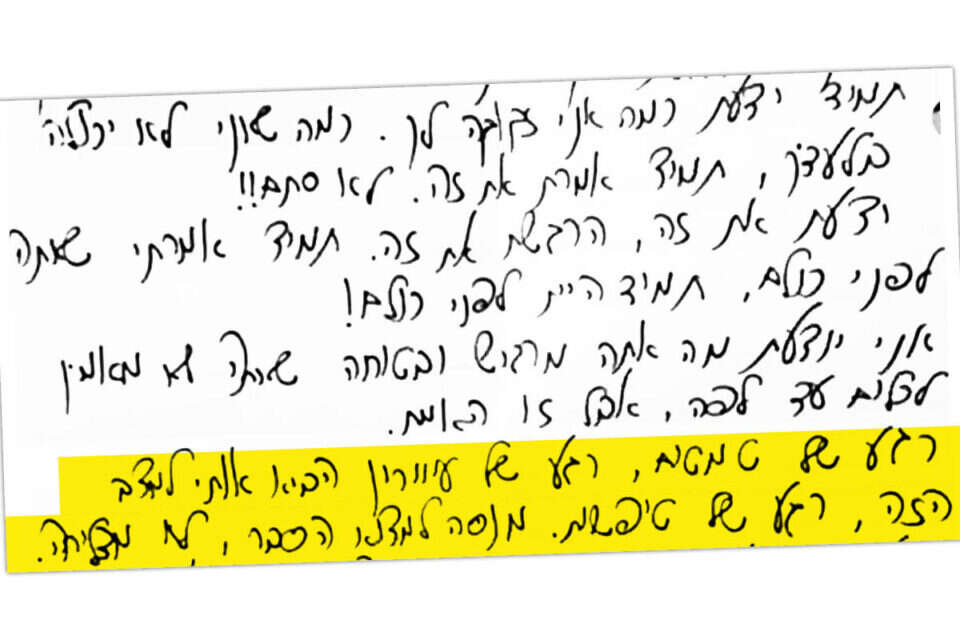 תמיד ידעת כמה אני זקוקה לך. כמה שוני לא יכולה
בלעדך, תמיד אמרת את זה. לא סתם!!
ידעת את זה, הרגשת את זה. תמיד אמרתי שאתה
לפני כולם, תמיד היית לפני כולם!
אני יודעת מה אתה מרגיש ובטוחה שאתה לא מאמין
עד לפה, אבל זו האמת.
רגע של טמטום, רגע של עיוורון הביא אותי למצב
הזה, רגע של טיפשות. מנסה למצוא הסבר, לא מצליחה.